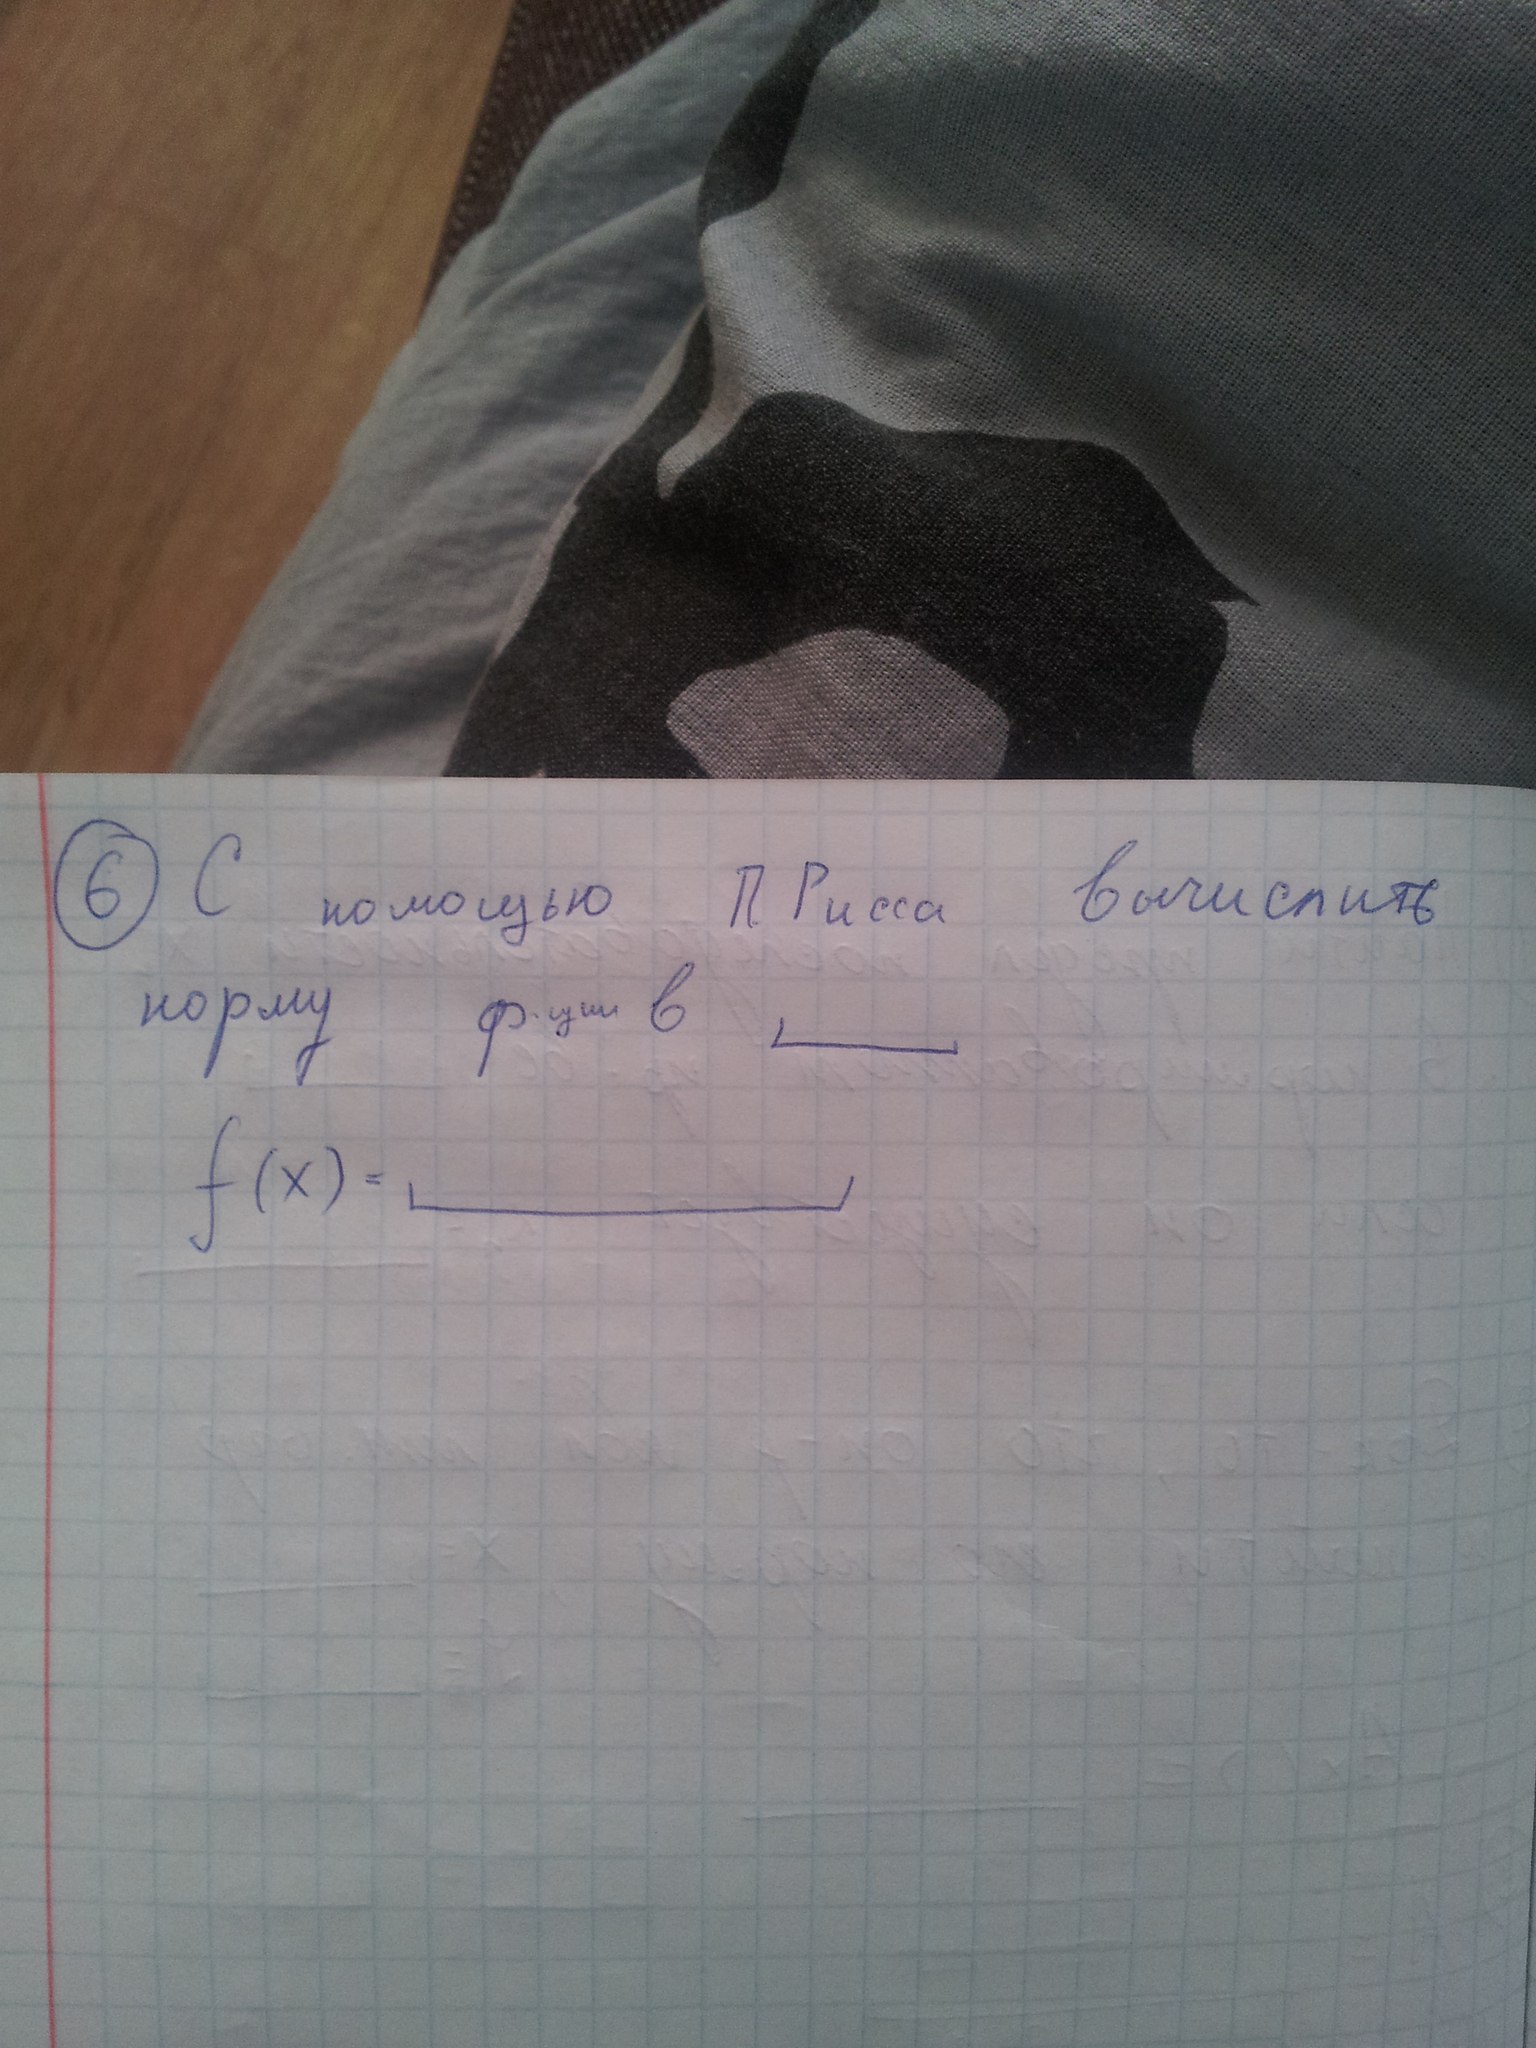 6 С помощью П Рисса вычислить
норму ф-ции в
f(x)=